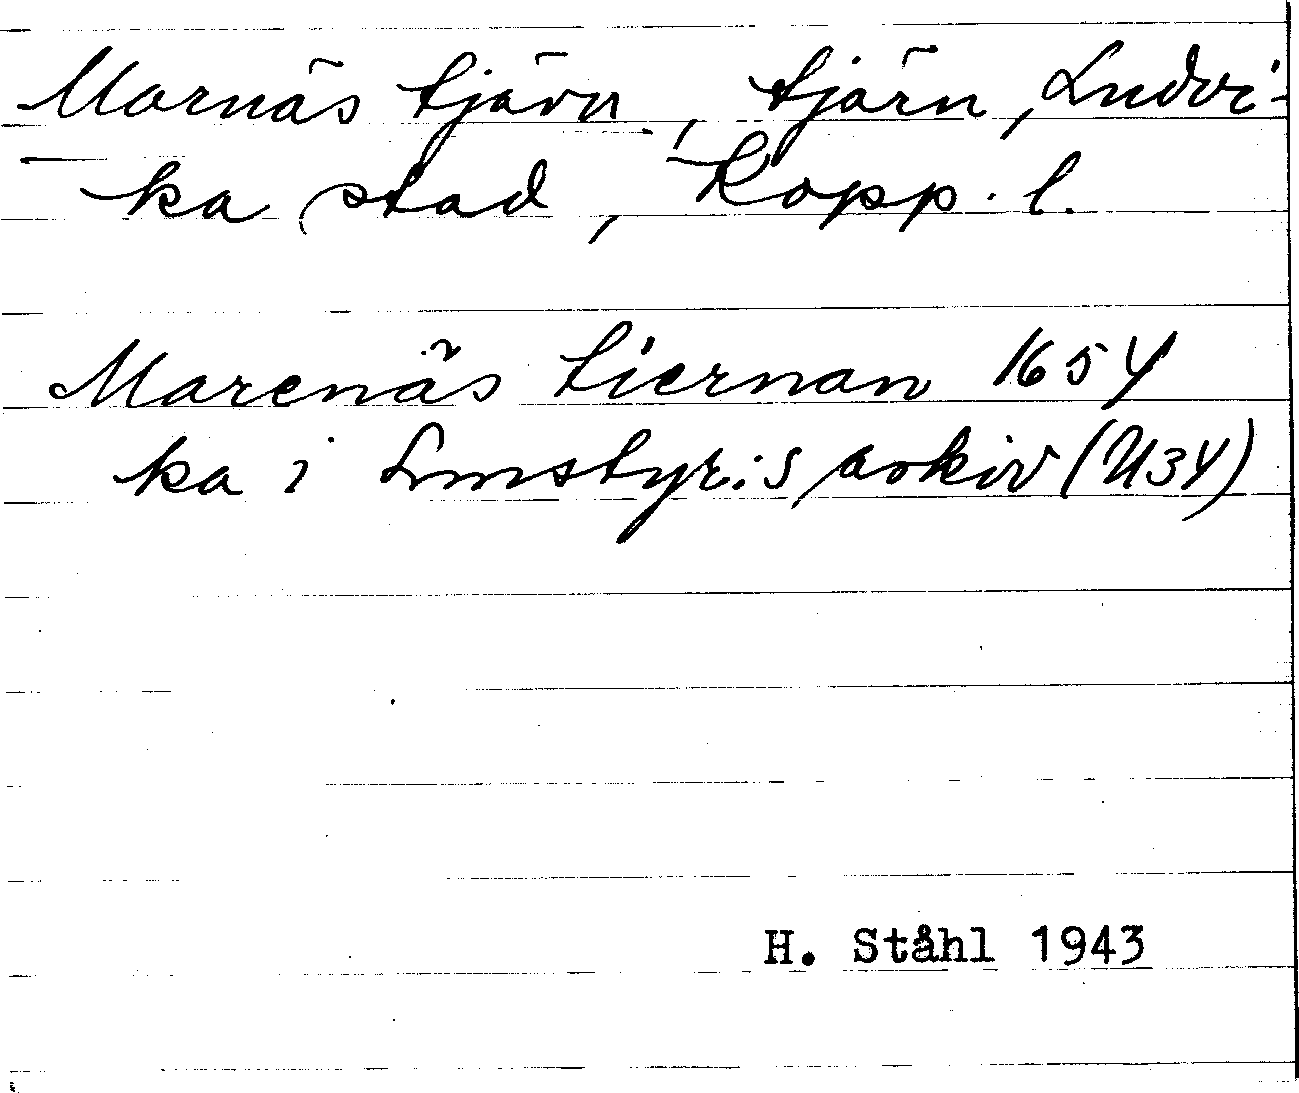 Marnästjärn, tjärn, Ludvi-
ka stad, Kopp. l.
Marenäs tiernan 1654
ka i Lmstyr:s arkiv (U34)
H. Ståhl 1943